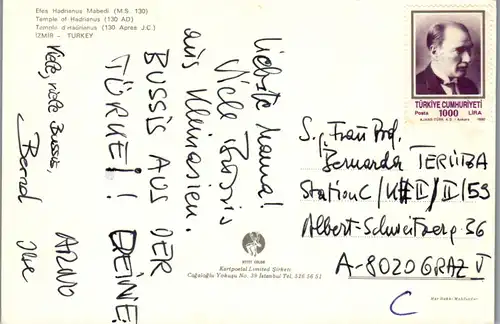 Efes Hadrianus Mabedi (M.S. 130)
Temple of Hadrianus (130 AD)
Temple d'Hadrianus (130 Apres J.C.)
İZMİR – TURKEY
Liebste Mama!
Viele Bussis
aus Kleinasien.
BUSSIS AUS DER
TÜRKEI!! DEINE
Viele, viele Bussis,
Bernd
ARNO
TÜRKİYE CUMHURİYETİ
Posta 1000 LİRA
S.g. Frau Prof.
Bernarda TERLIBA
Station C / II / II / 59
Albert-Schweitzerg. 36
A-8020 GRAZ V
C
Kartpostal Limited Şirketi
Cağaloğlu Yokuşu No. 39 İstanbul Tel. 526 56 51
Her Hakkı Mahfuzdur